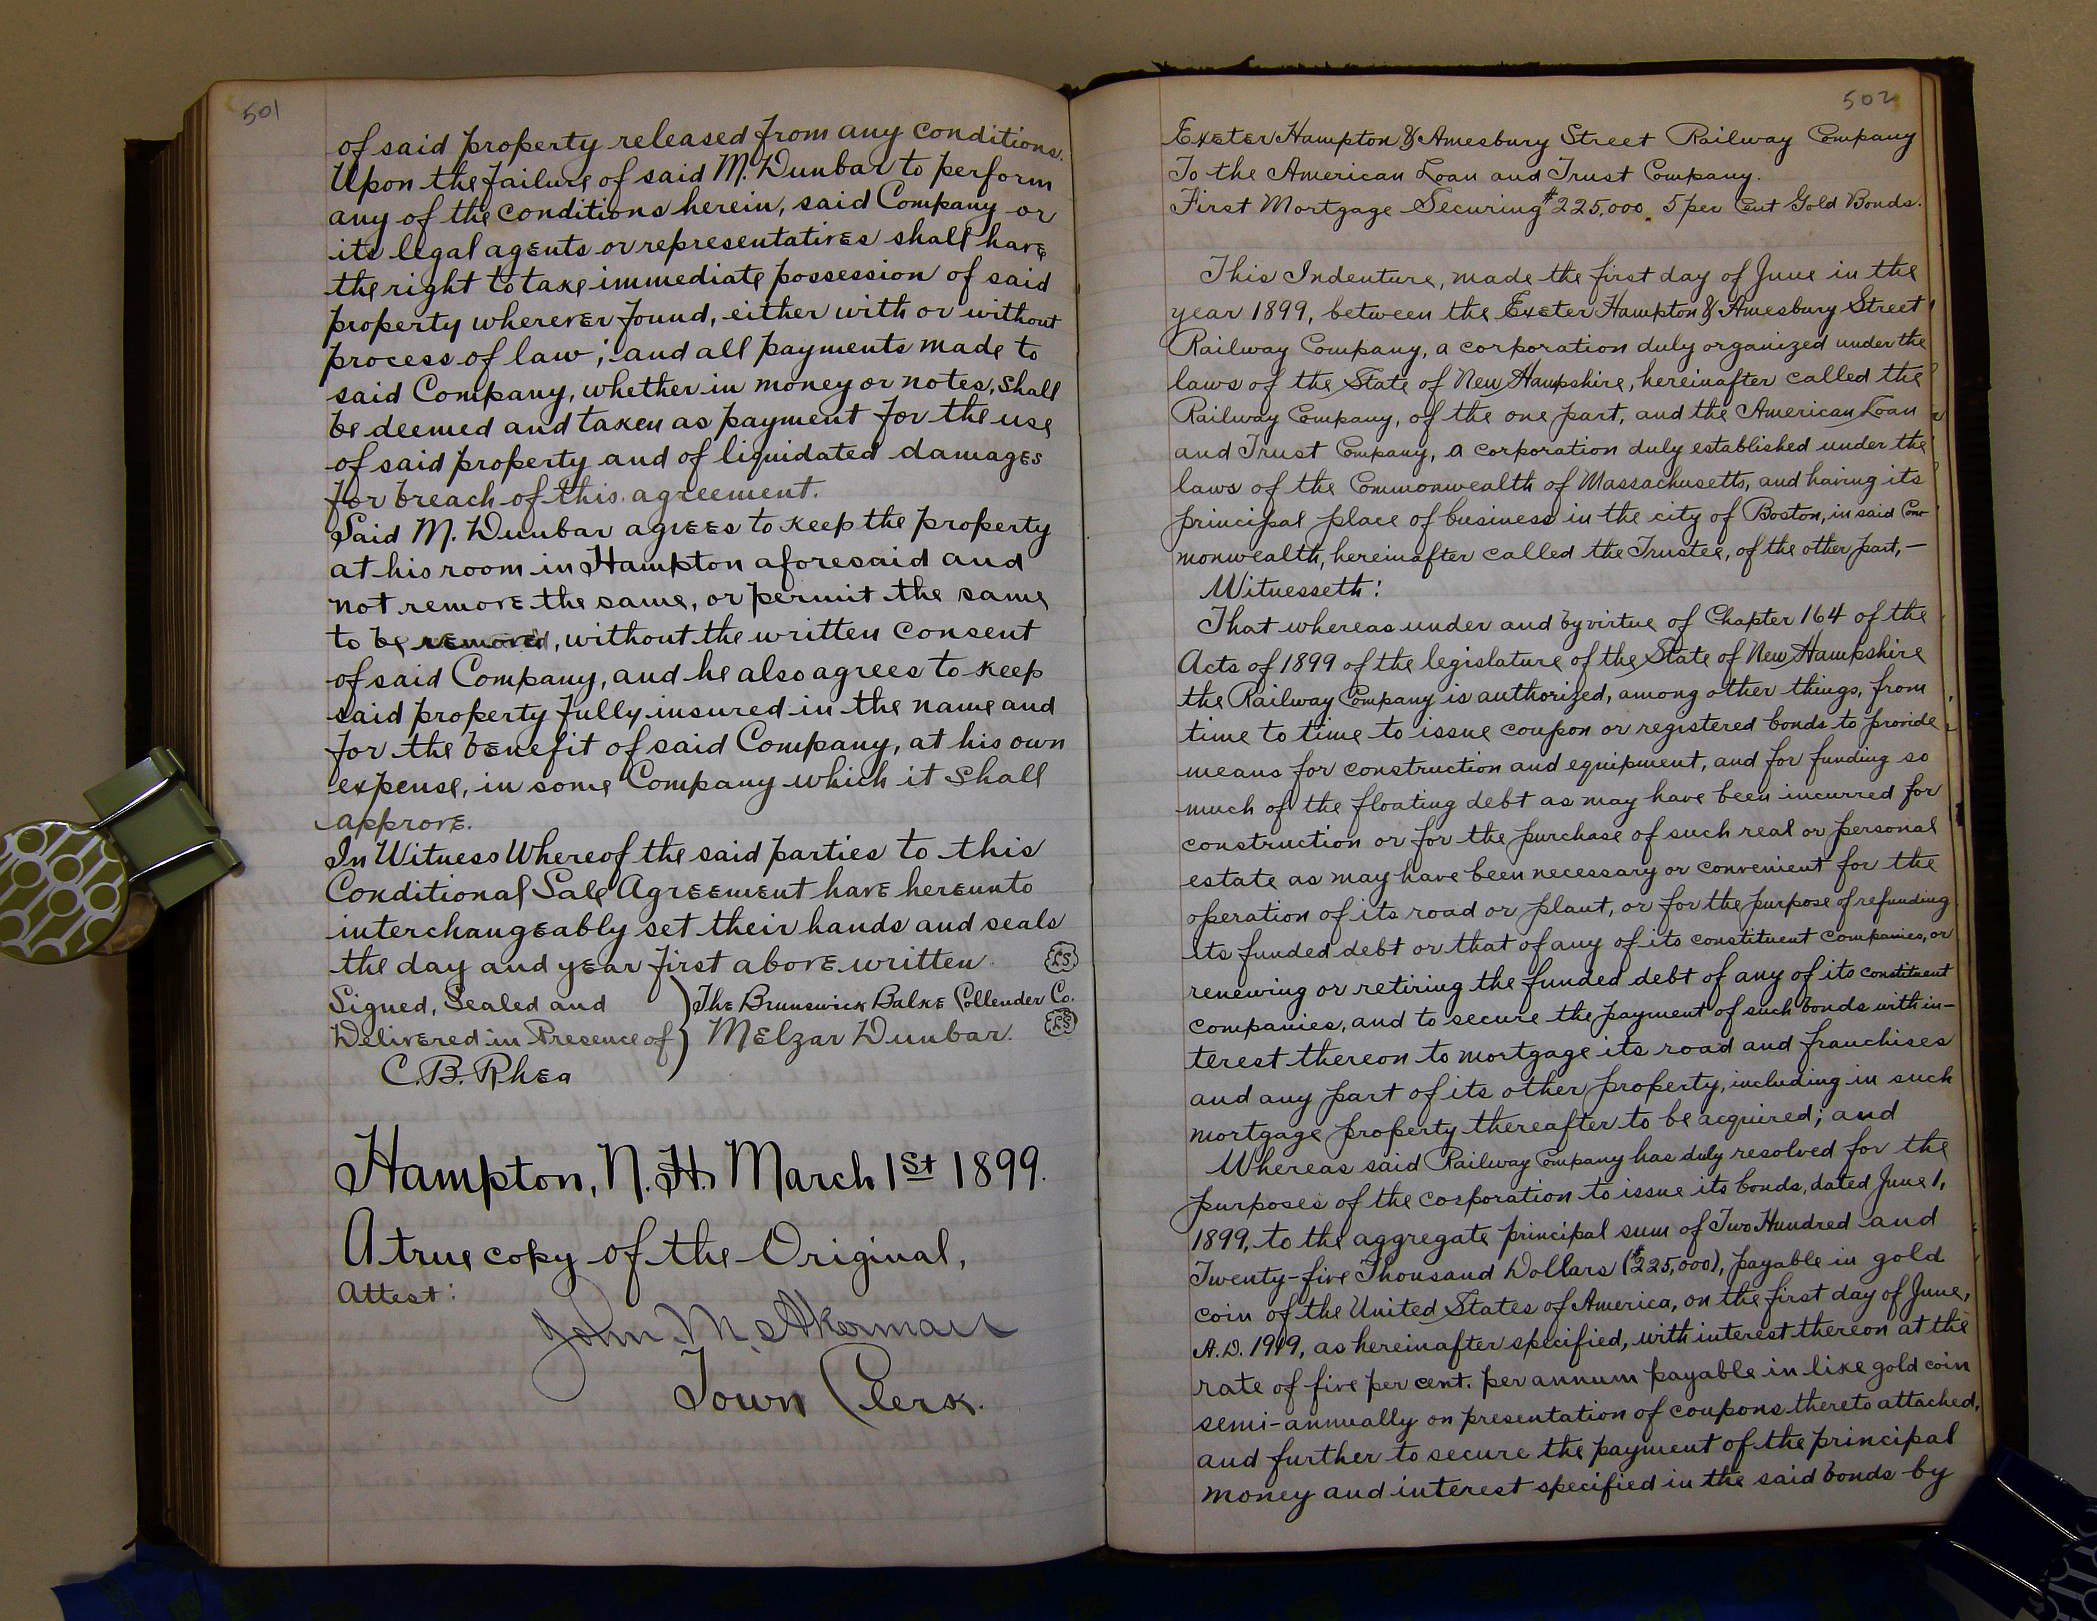 501
of said property released from any conditions.
Upon the failure of said M. Dunbar to perform
any of the conditions herein, said Company or
its legal agents or representatives shall have
the right to take immediate possession of said
property wherever found, either with or without
process of law; and all payments made to
said Company, whether in money or notes, shall
be deemed and taken as payment for the use
of said property and of liquidated damages
for breach of this agreement.
Said M. Dunbar agrees to keep the property
at his room in Hampton aforesaid and
not remove the same, or permit the same
to be removed, without the written consent
of said Company, and he also agrees to keep
said property fully insured in the name and
for the benefit of said Company, at his own
expense, in some Company which it shall
approve.
In Witness Whereof the said parties to this
Conditional Sale Agreement have hereunto
interchangeably set their hands and seals
the day and year first above written. LS
Signed, Sealed and } The Brunswick Balke Collender Co.
Delivered in Presence of } Melzar Dunbar. LS
C. B. Rhea
Hampton, N. H. March 1st 1899.
A true copy of the Original,
Attest:
John M. Akerman
Town Clerk.
502
Exeter Hampton & Amesbury Street Railway Company
To the American Loan and Trust Company.
First Mortgage Securing $225,000. 5 per Cent Gold Bonds.
This Indenture, made the first day of June in the
year 1899, between the Exeter Hampton & Amesbury Street
Railway Company, a corporation duly organized under the
laws of the State of New Hampshire, hereinafter called the
Railway Company, of the one part, and the American Loan
and Trust Company, a corporation duly established under the
laws of the Commonwealth of Massachusetts, and having its
principal place of business in the city of Boston, in said Com-
monwealth, hereinafter called the Trustee, of the other part,—
Witnesseth:
That whereas under and by virtue of Chapter 164 of the
Acts of 1899 of the legislature of the State of New Hampshire
the Railway Company is authorized, among other things, from
time to time to issue coupon or registered bonds to provide
means for construction and equipment, and for funding so
much of the floating debt as may have been incurred for
construction or for the purchase of such real or personal
estate as may have been necessary or convenient for the
operation of its road or plant, or for the purpose of refunding
its funded debt or that of any of its constituent companies, or
renewing or retiring the funded debt of any of its constituent
companies, and to secure the payment of such bonds with in-
terest thereon to mortgage its road and franchises
and any part of its other property, including in such
mortgage property thereafter to be acquired; and
Whereas said Railway Company has duly resolved for the
purposes of the corporation to issue its bonds, dated June 1,
1899, to the aggregate principal sum of Two Hundred and
Twenty-five Thousand Dollars ($225,000), payable in gold
coin of the United States of America, on the first day of June,
A.D. 1919, as hereinafter specified, with interest thereon at the
rate of five per cent. per annum payable in like gold coin
semi-annually on presentation of coupons thereto attached,
and further to secure the payment of the principal
money and interest specified in the said bonds by